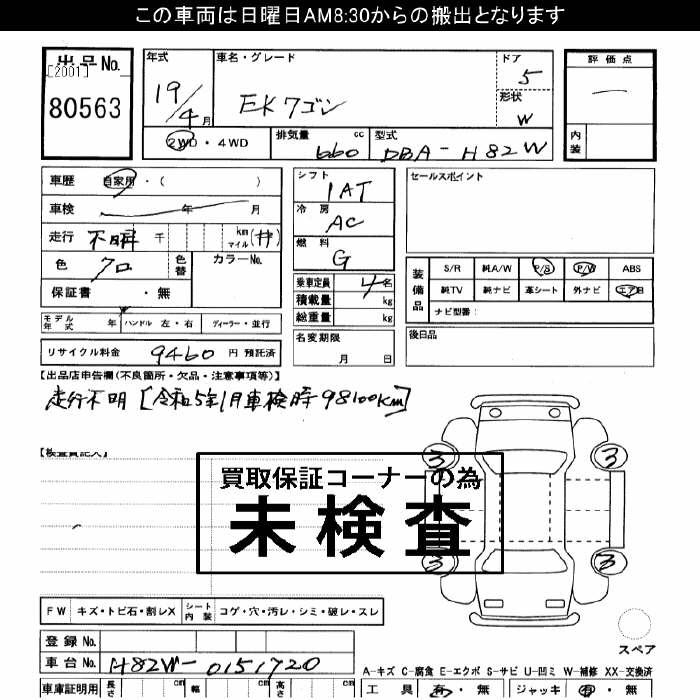 この車両は日曜日AM8:30からの搬出となります
出品No.
[2001]
80563
年式
19/4月
車名・グレード
EKワゴン
ドア 5
形状 W
評価点
内装
2WD・4WD
排気量 660 cc
型式 DBA-H82W
車歴 自家用・( )
車検 年 月
走行 不明 千 km マイル (#)
色 クロ
色替
カラーNo.
保証書 ・無
シフト
1AT
冷房
AC
燃料
G
乗車定員 4名
積載量 kg
総重量 kg
名変期限
月 日
セールスポイント
装備品
S/R 純A/W P/S P/W ABS
純TV 純ナビ 革シート 外ナビ エアB
ナビ型番:
後日品
モデル年式 年 ハンドル 左・右 ディーラー・並行
リサイクル料金 9460 円 預託済
【出品店申告欄(不良箇所・欠品・注意事項等)】
走行不明 [令和5年1月車検時98100km]
【検査員記入】
買取保証コーナーの為
未検査
3 3
3 3
FW キズ・トビ石・割レX シート内装 コゲ・穴・汚レ・シミ・破レ・スレ
スペア
登録No.
車台No. H82W-0151720
A-キズ C-腐食 E-エクボ S-サビ U-凹ミ W-補修 XX-交換済
車庫証明用 長さ cm 幅 cm 高さ cm
工具 有・無 ジャッキ 有・無